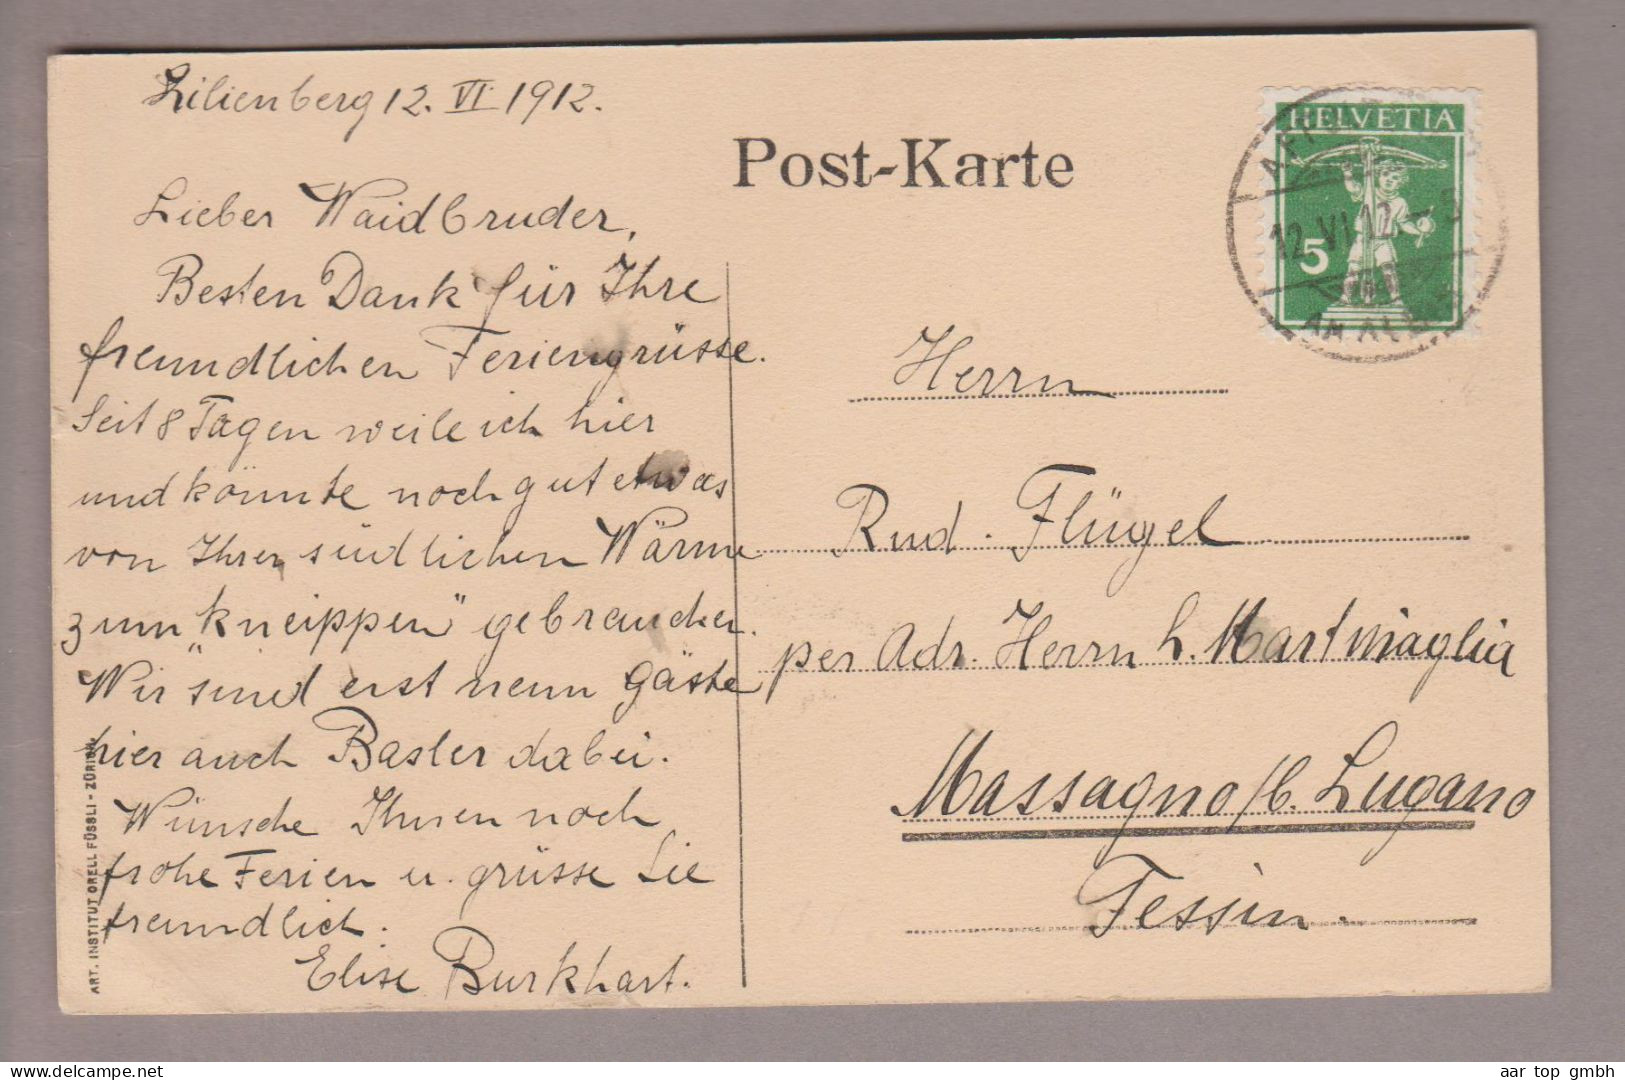 Lilienberg 12. VI. 1912.
Lieber Waidbruder,
Besten Dank für Ihre
freundlichen Feriengrüsse.
Seit 8 Tagen weile ich hier
und könnte noch gut etwas
von Ihrer südlichen Wärme
zum „kneippen" gebrauchen.
Wir sind erst neun Gäste
hier auch Basler dabei.
Wünsche Ihnen noch
frohe Ferien u. grüsse Sie
freundlich.
Elise Burkhart.
ART. INSTITUT ORELL FÜSSLI - ZÜRICH.
Post-Karte
HELVETIA
5
12.VI.12
AM ALBIS
Herrn
Rud. Flügel
per Adr. Herrn L. Martinaglia
Massagno/b. Lugano
Tessin.
delcampe.net
aar top gmbh